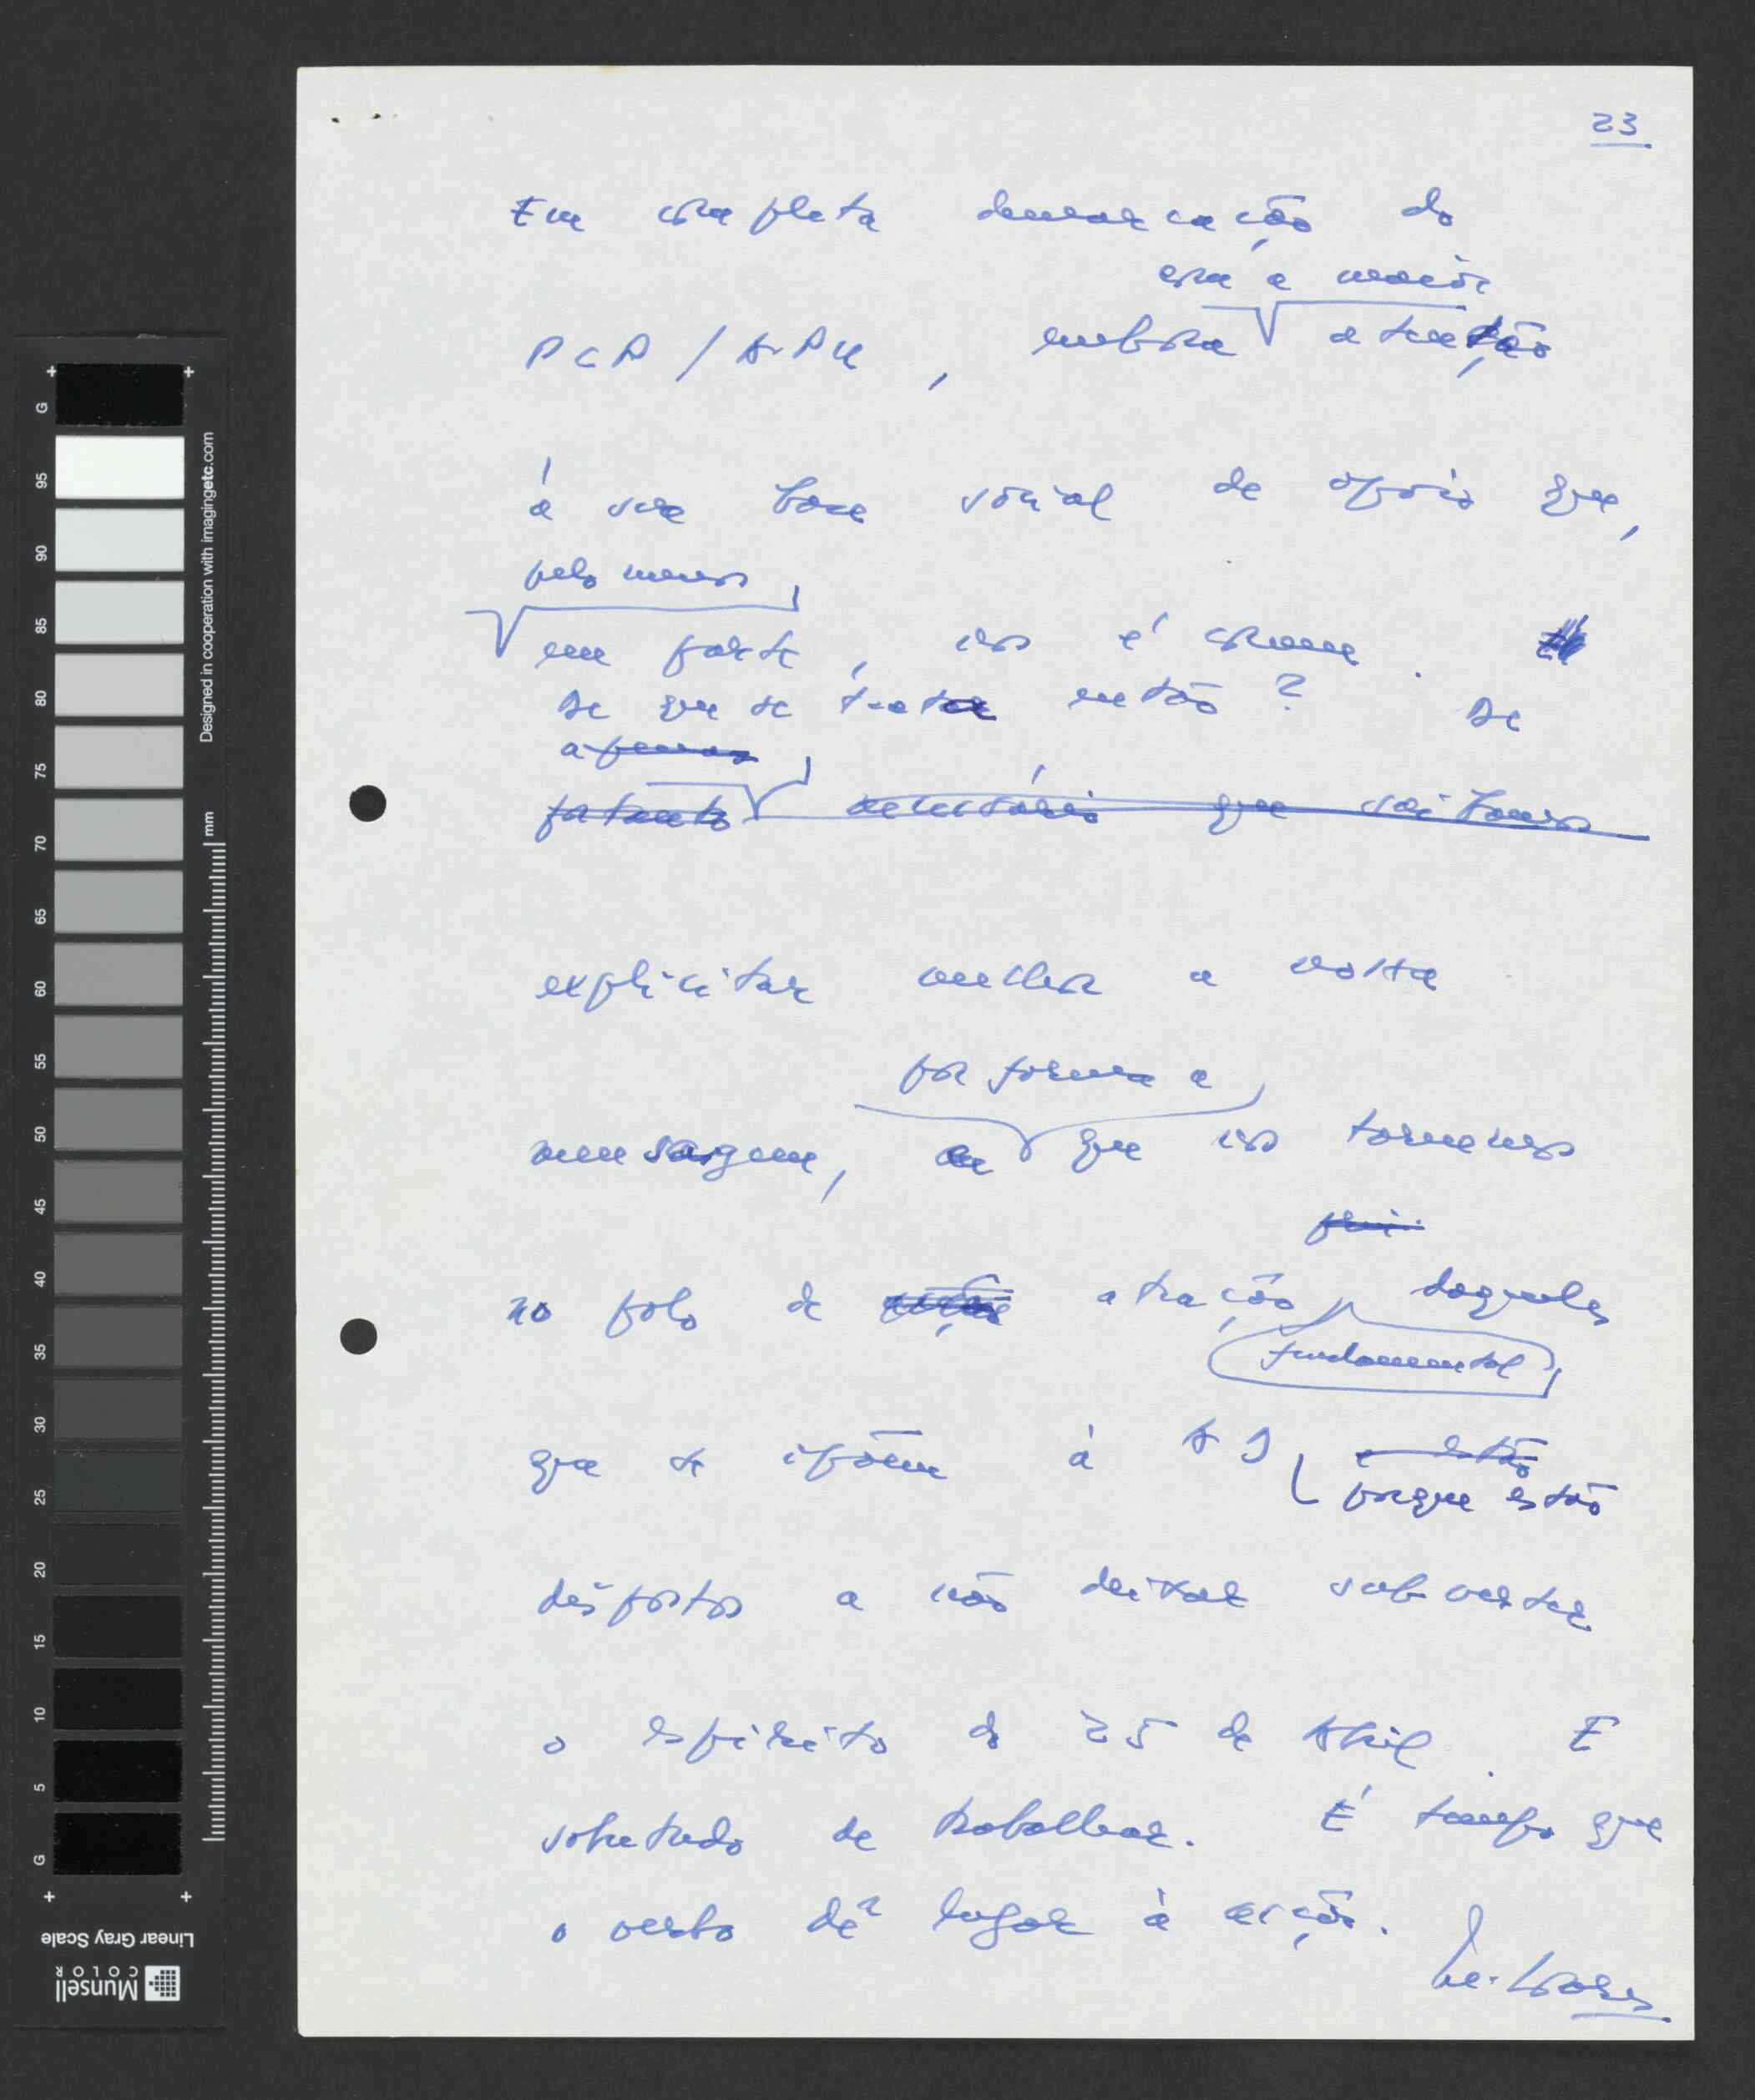 23
Em completa demarcação do
com a maior
PCP / APU, embora atenção
à sua base social de apoio que,
pelo menos
em parte, nos é comum.
De que se trata então? De
apenas
portanto necessário que saibamos
explicitar melhor a nossa
por forma a
mensagem, que nos tornemos
no polo de atração daqueles
fundamental
que se opõem à AD,
porque estão
dispostos a não deixar subverter
o espírito do 25 de Abril. E
sobretudo de trabalhar. É tempo que
o verbo dê lugar à acção.
G
95
90
85
80
75
70
65
60
55
50
45
40
35
30
25
20
15
10
5
G
mm
Designed in cooperation with imagingetc.com
Linear Gray Scale
Munsell
COLOR